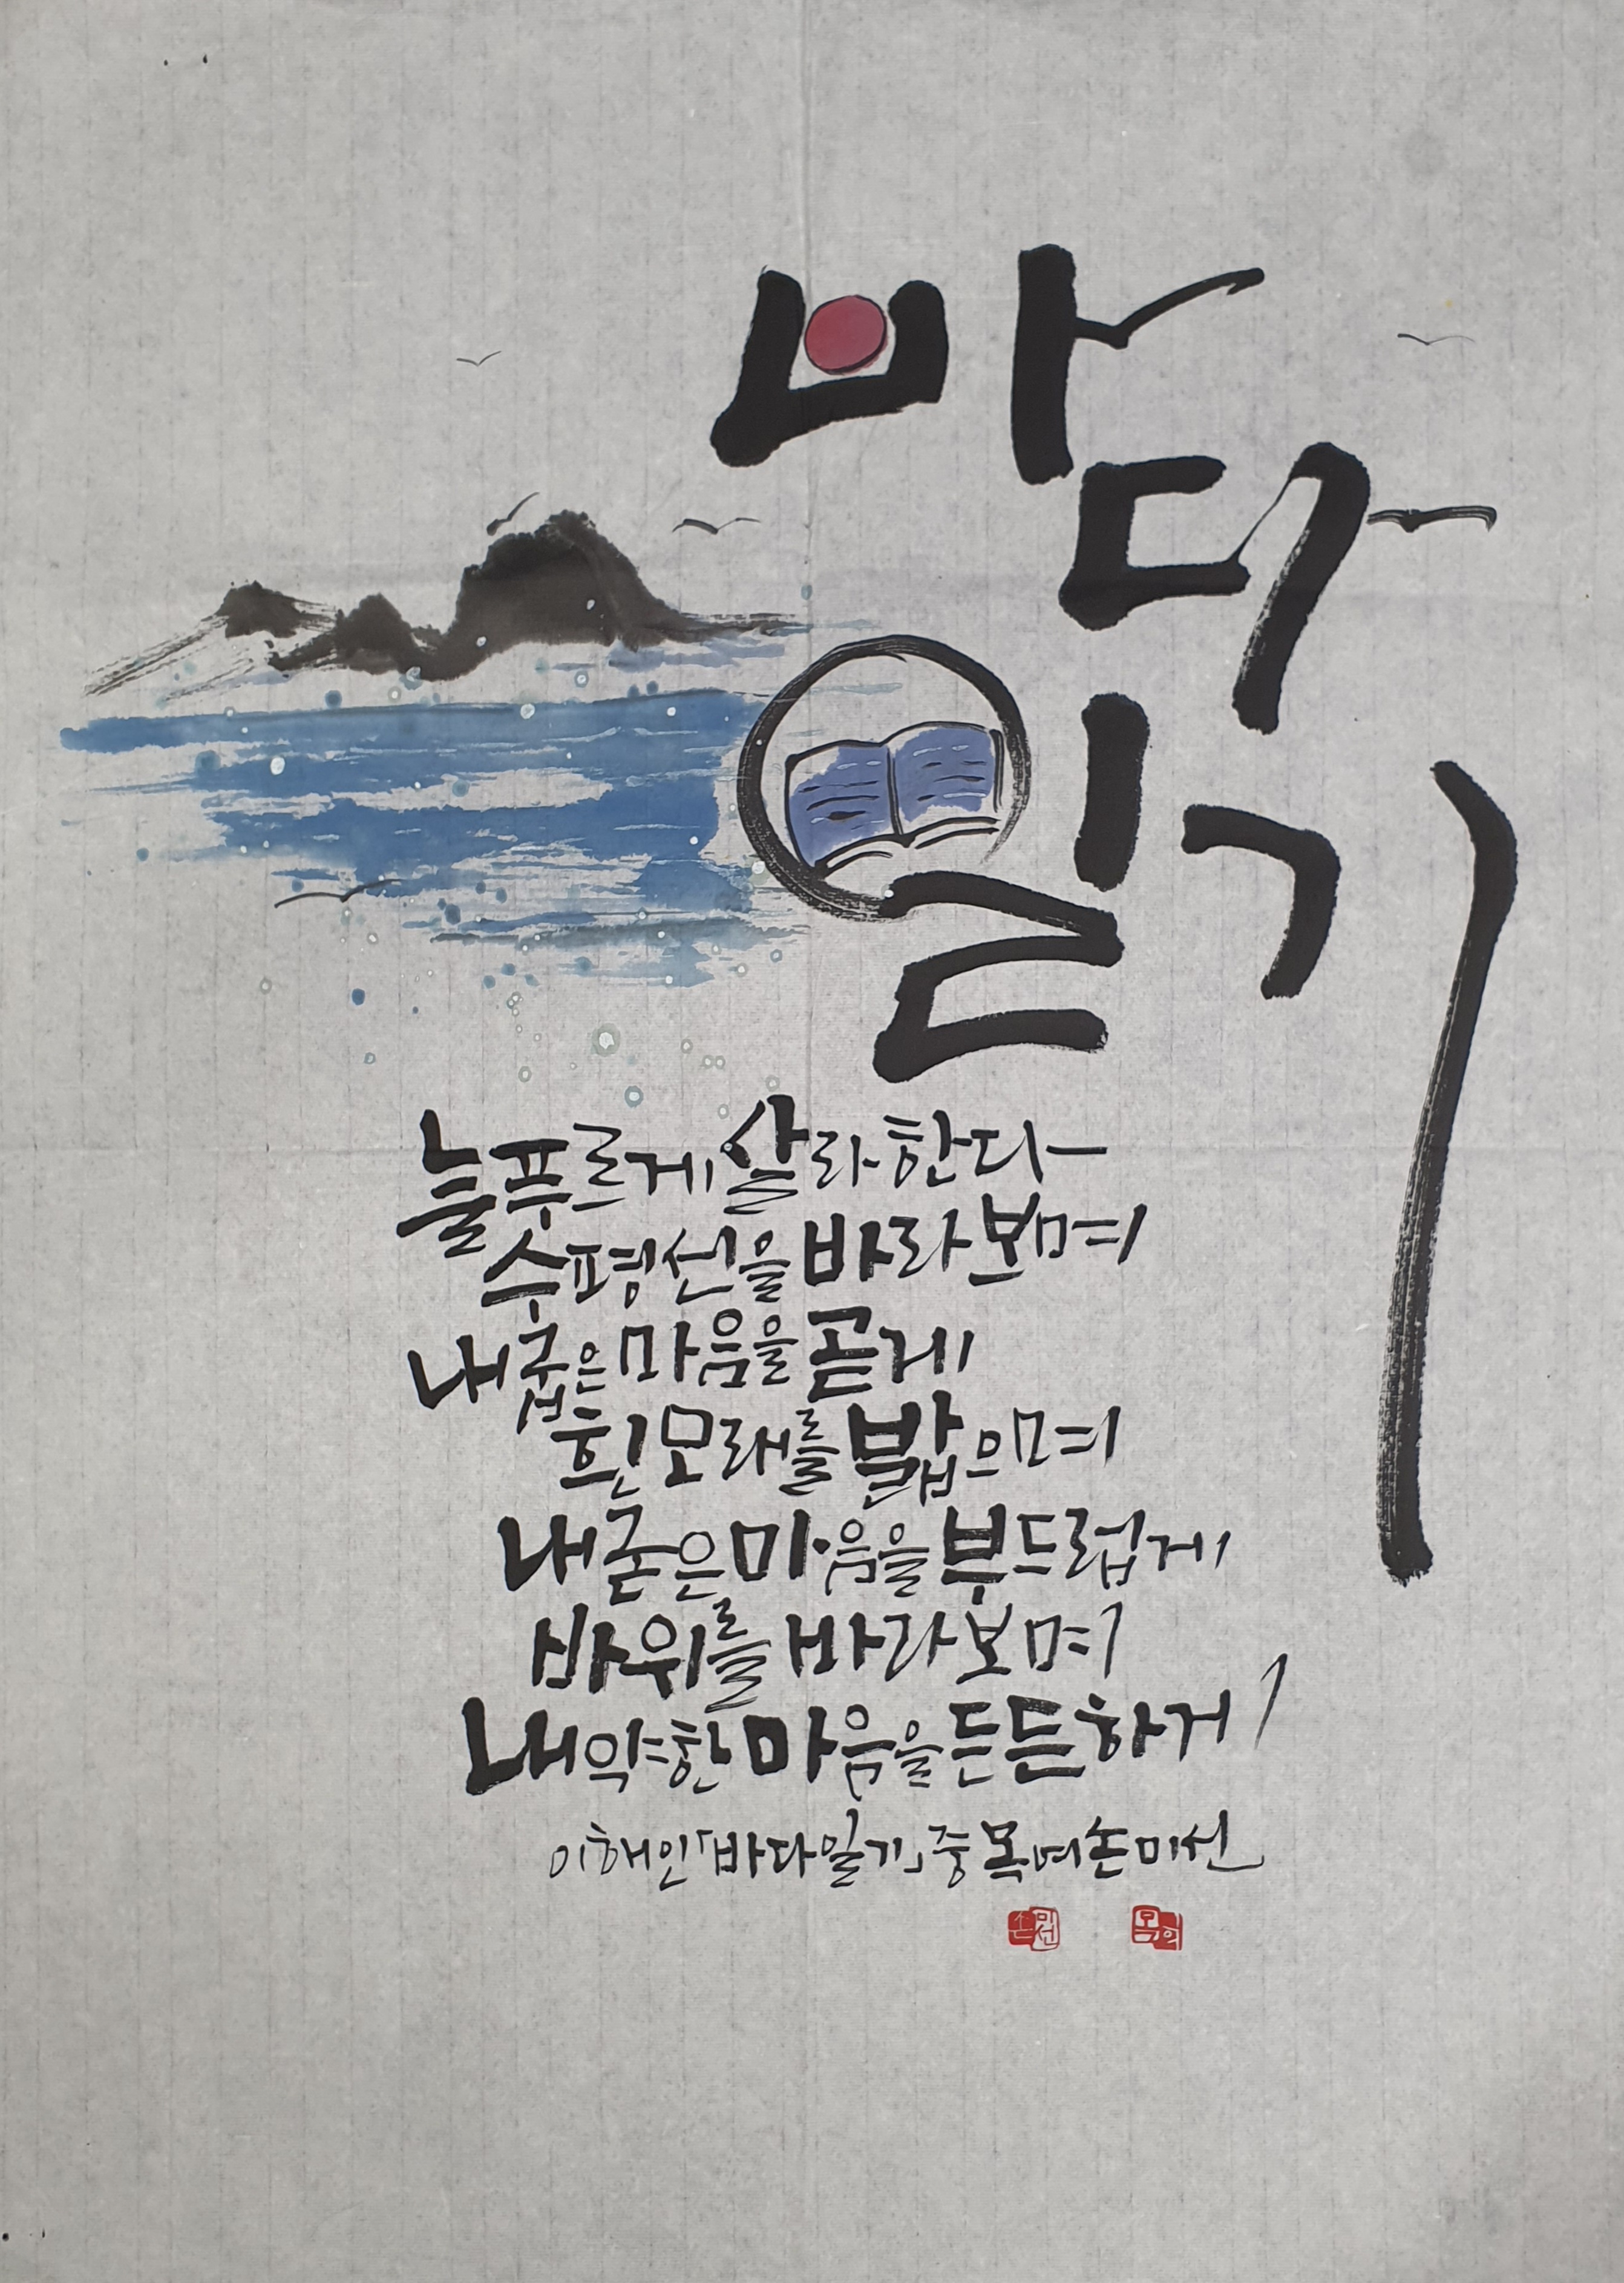 바다
일기
늘 푸르게 살라 한다
수평선을 바라보며
내 굽은 마음을 곧게
흰 모래를 밟으며
내 굳은 마음을 부드럽게
바위를 바라보며
내 약한 마음을 든든하게
이해인 「바다일기」 중 목여 손미선
손미선